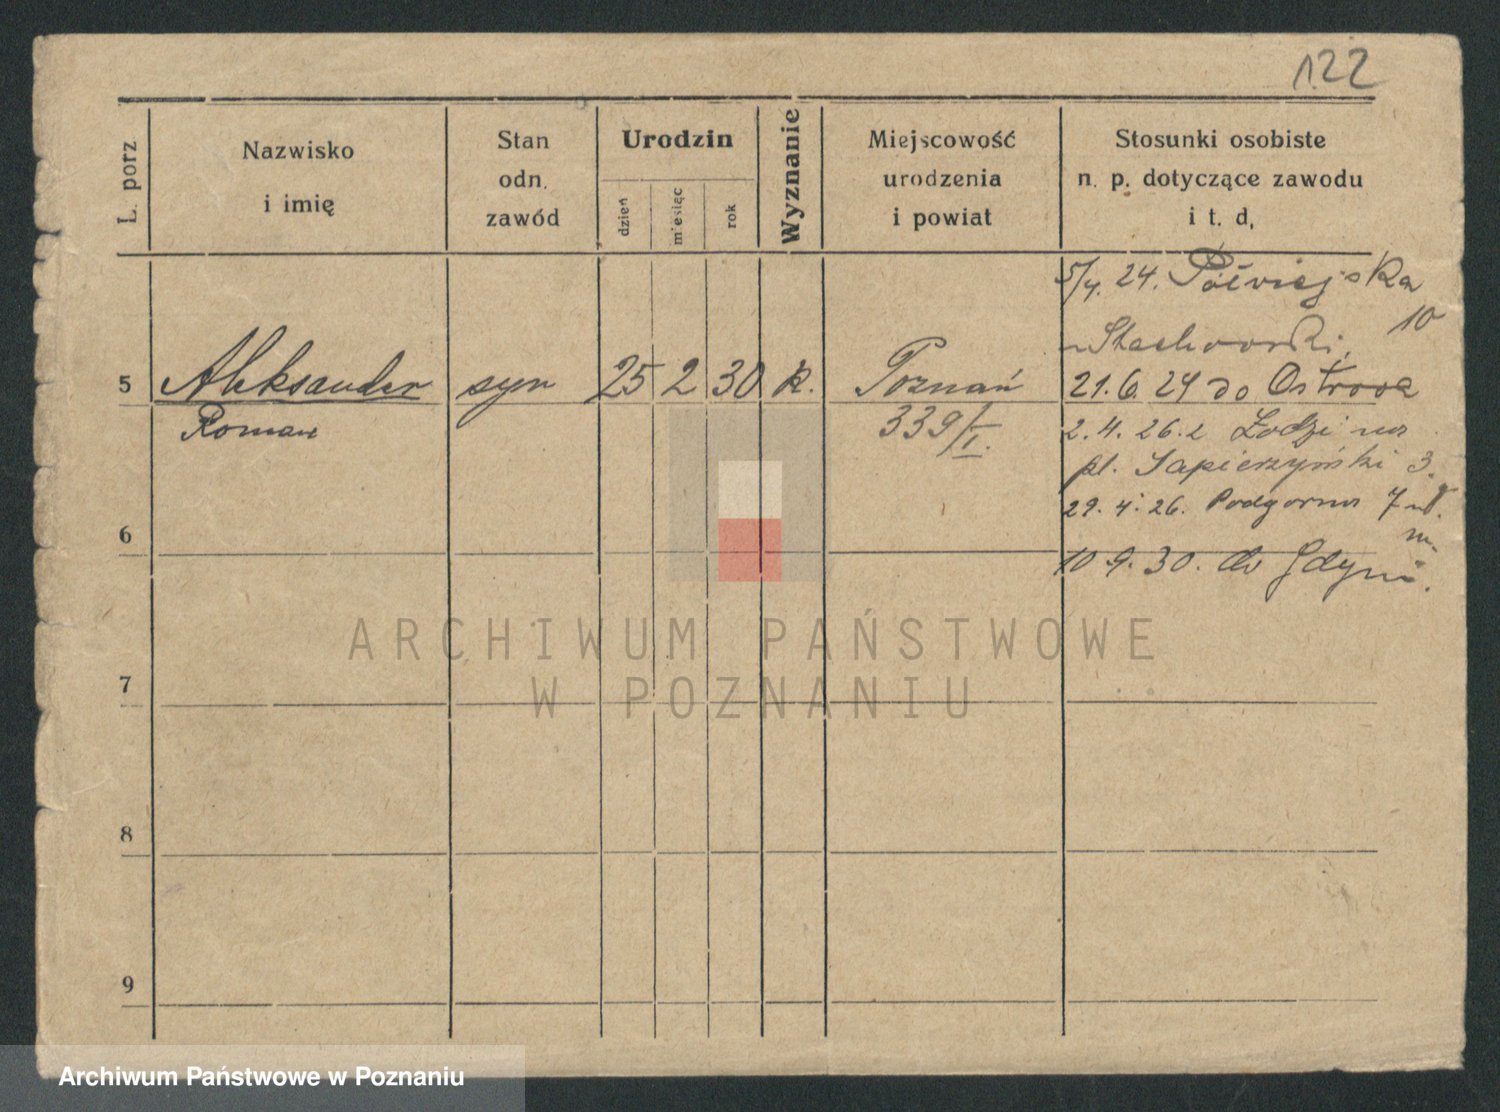 122
L. porz
Nazwisko
i imię
Stan
odn.
zawód
Urodzin
dzień
miesiąc
rok
Wyznanie
Miejscowość
urodzenia
i powiat
Stosunki osobiste
n. p. dotyczące zawodu
i t. d,
5/4. 24. Półwiejska
10
Stachowski,
5 Aleksander syn 25 2 30 k. Poznań 21.6.24 do Ostrowa
Roman 339/I. 2.4.26. z Łodzi
pl. Sapierzyński 3.
29.4.26. Podgorna 7
6
10 9.30. do Gdyni.
ARCHIWUM PAŃSTWOWE
W POZNANIU
7
8
9
Archiwum Państwowe w Poznaniu